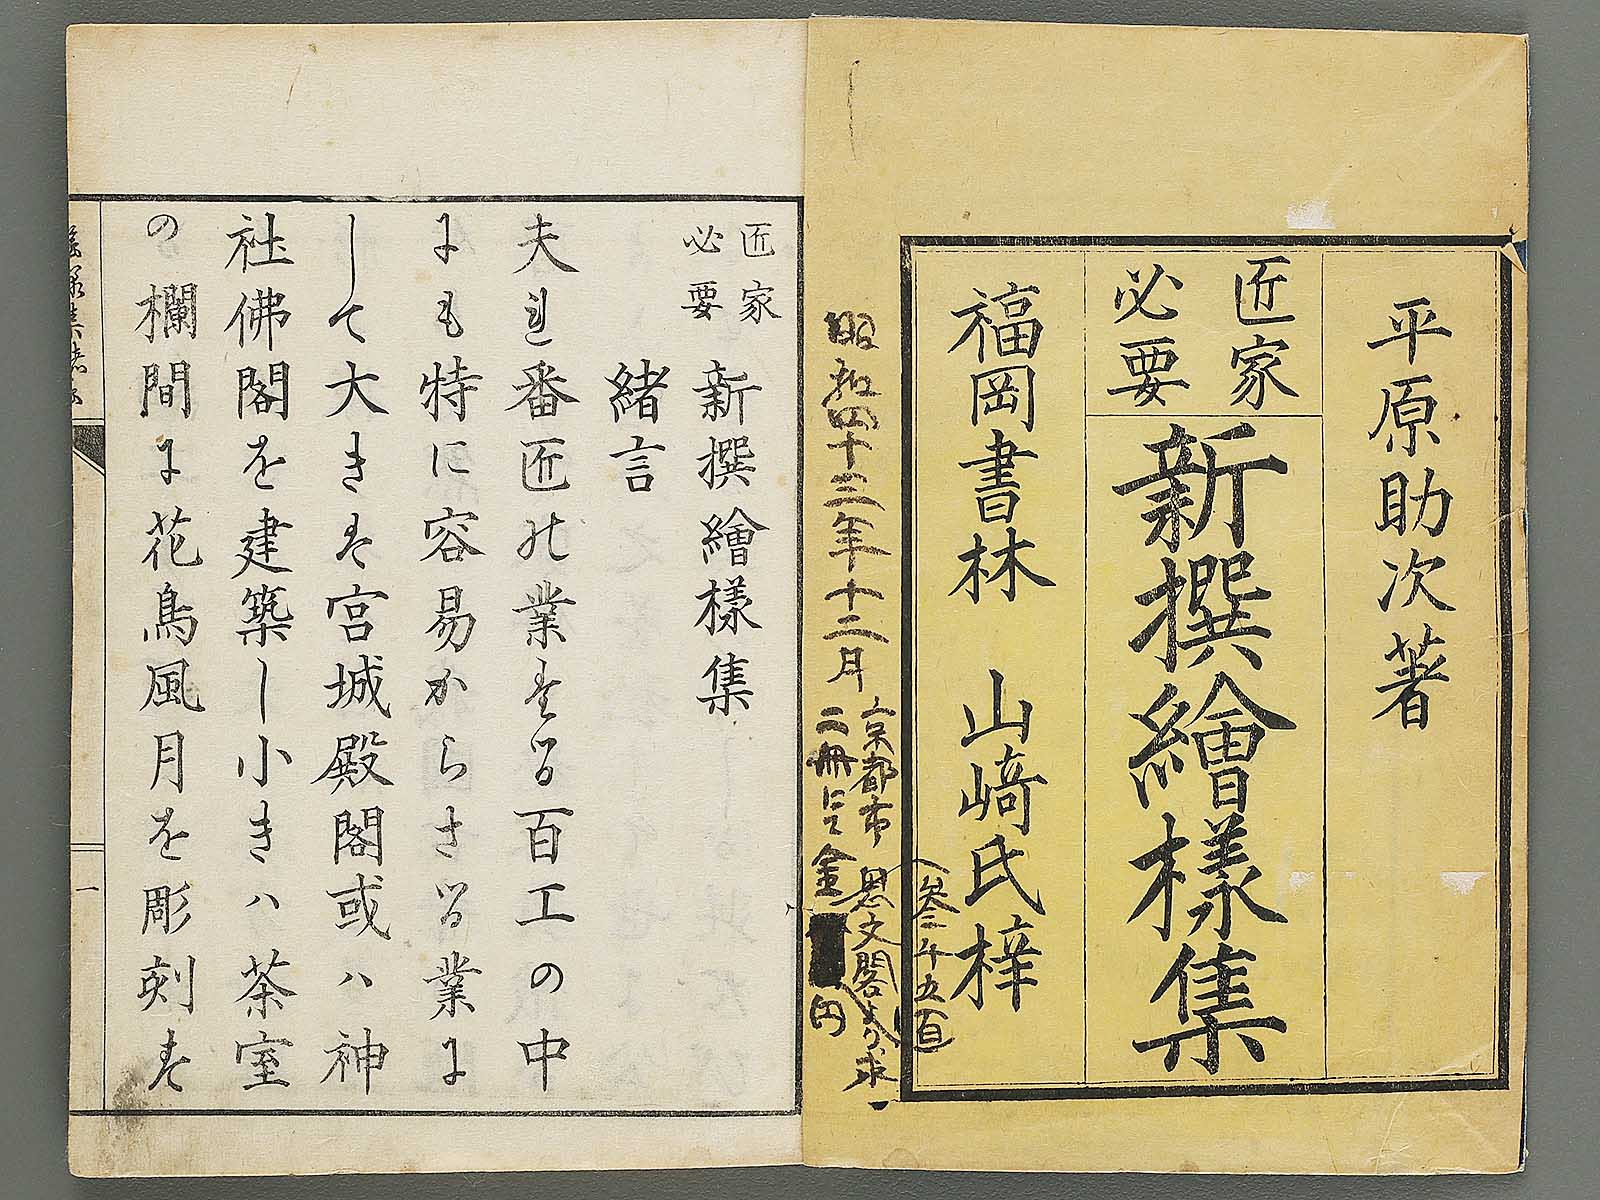 平原助次著
匠家
必要
新撰繪樣集
福岡書林 山﨑氏梓
昭和四十三年十二月
京都市 思文閣より求
二冊にて金 円
(参千五百)
匠家
必要
新撰繪樣集
緒言
夫れ番匠の業たる百工の中
にも特に容易からさる業に
して大きは宮城殿閣或ハ神
社佛閣を建築し小きハ茶室
の欄間に花鳥風月を彫刻す
一